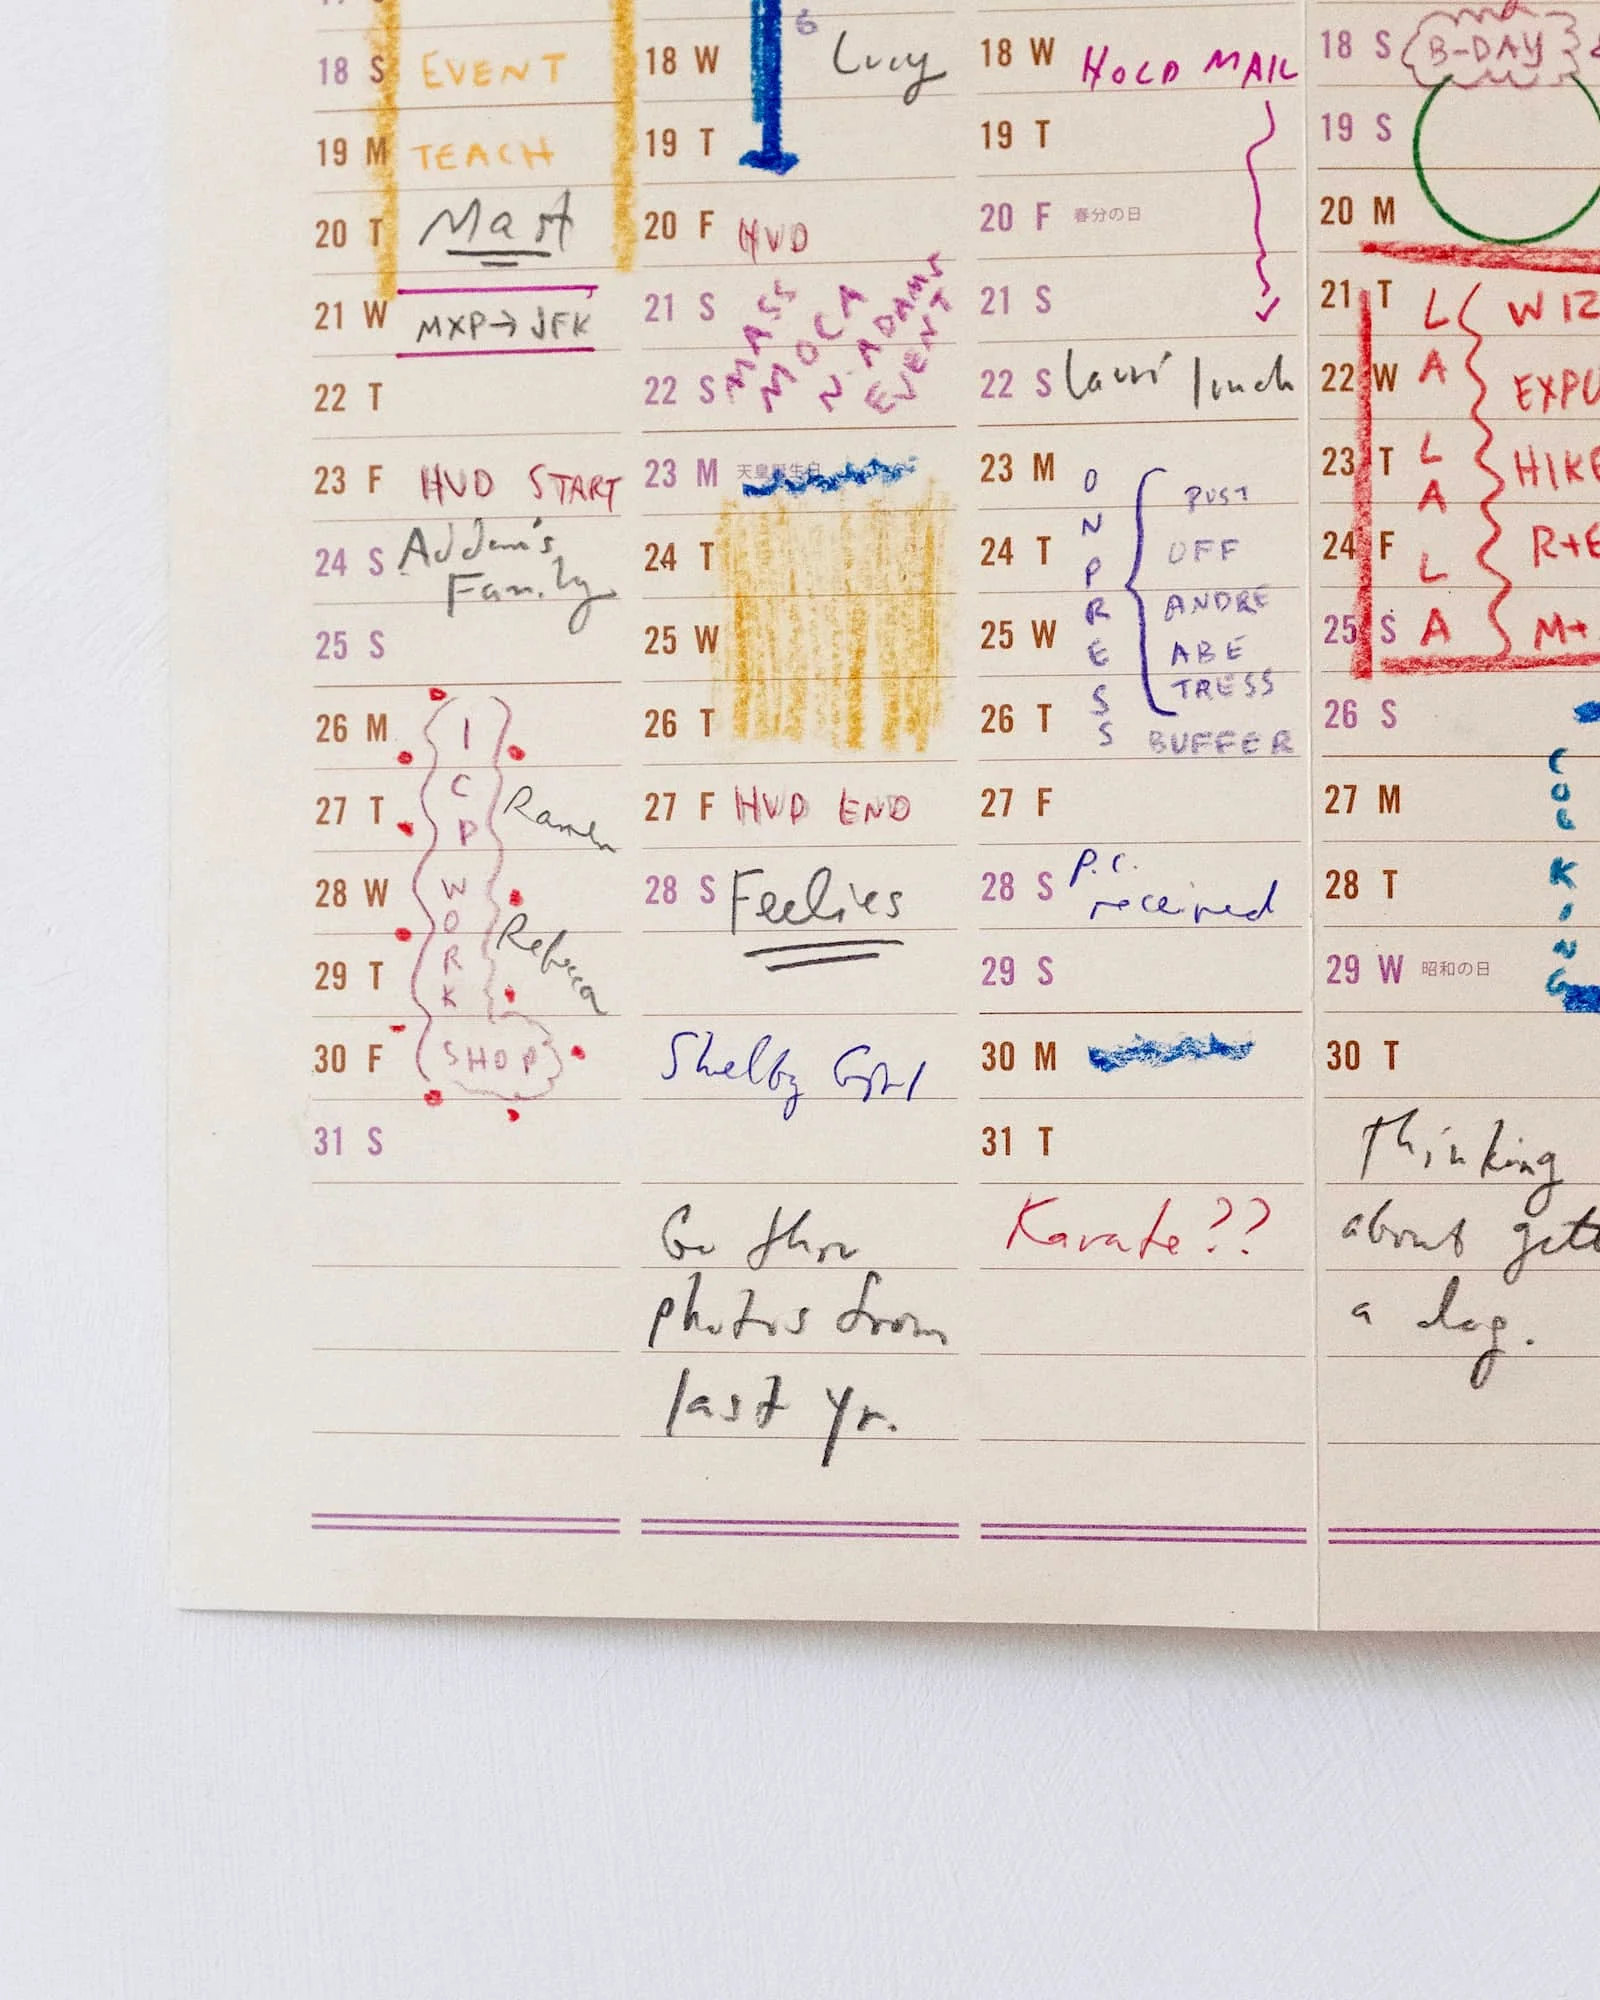 18 S EVENT
19 M TEACH
20 T Mast
21 W MXP→JFK
22 T
23 F HVD START
24 S Addam's
Family
25 S
26 M
27 T
28 W
29 T
30 F
31 S
I
C
P
W
O
R
K
SHOP
Ramen
Rebecca
6
18 W Lucy
19 T
20 F HVD
21 S
22 S
MASS
MOCA
N. ADAMS
EVENT
23 M 天皇誕生日
24 T
25 W
26 T
27 F HVD END
28 S Feelies
Shelby
Go thru
photos from
last yr.
18 W HOLD MAIL
19 T
20 F 春分の日
21 S
22 S lunch
23 M
24 T
25 W
26 T
O
N
P
R
E
S
S
POST
OFF
ANDRE
ABE
TRESS
BUFFER
27 F
28 S P.C.
received
29 S
30 M
31 T
Karate??
18 S B-DAY
19 S
20 M
21 T
22 W
23 T
24 F
25 S
L
A
L
A
L
A
WIZ
EXPU
HIKE
R+E
M+
26 S
27 M
28 T
29 W 昭和の日
30 T
K
I
N
G
Thinking
about gett
a dog.